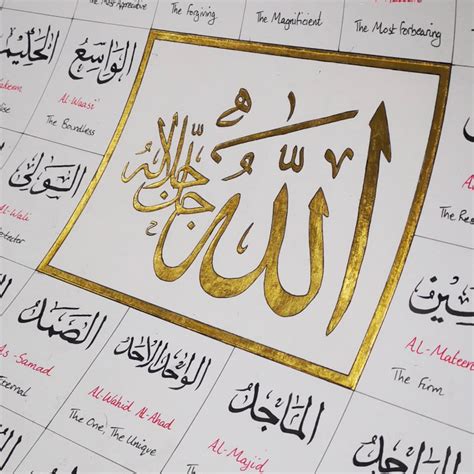 The Most Appreciative
The Forgiving
The Magnificent
The Most Forbearing
الواسع
Al-Waasi'
The Boundless
الولي
Al-Wali
الله جل جلاله
المتين
Al-Mateen
The Firm
الصمد
As-Samad
الواحد الاحد
Al-Wahid Al-Ahad
The One, The Unique
الماجد
Al-Majid